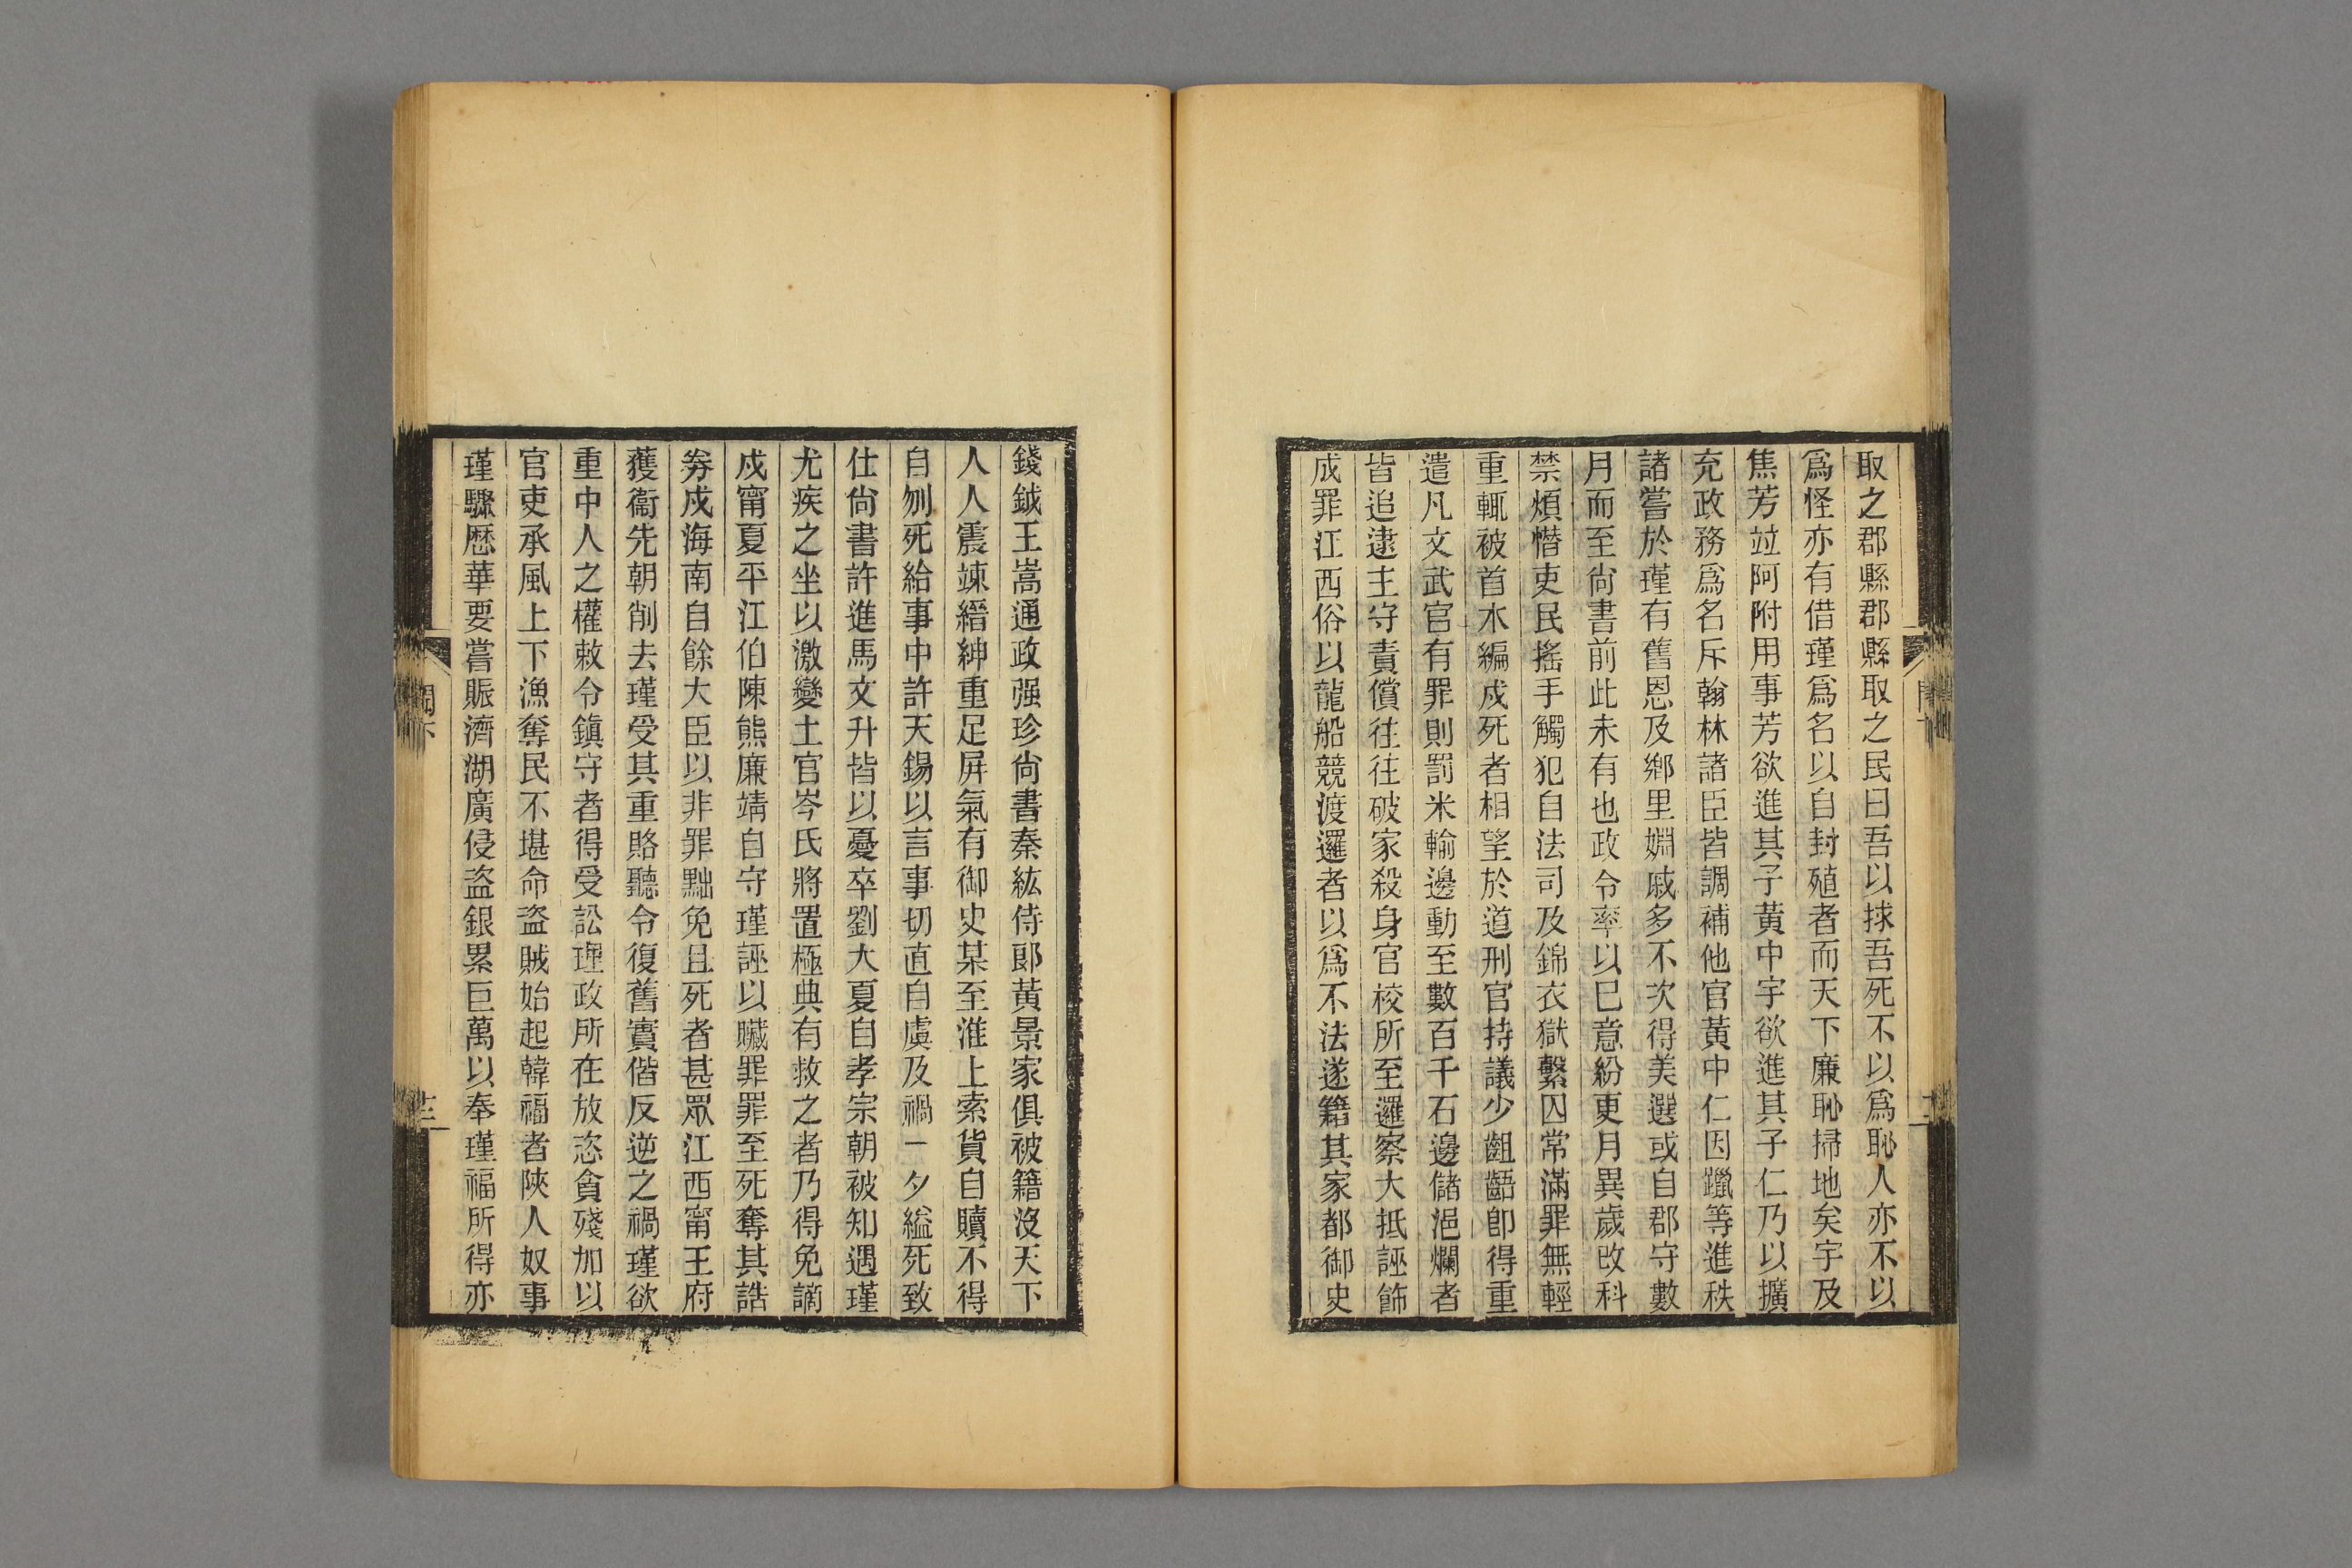 取之郡縣郡縣取之民曰吾以捄吾死不以爲恥人亦不以
爲怪亦有借瑾爲名以自封殖者而天下廉恥掃地矣宇及
焦芳竝阿附用事芳欲進其子黄中宇欲進其子仁乃以擴
充政務爲名斥翰林諸臣皆調補他官黄中仁因躐等進秩
諸嘗於瑾有舊恩及鄉里婣戚多不次得美選或自郡守數
月而至尙書前此未有也政令率以巳意紛更月異歲改科
禁煩憯吏民搖手觸犯自法司及錦衣獄繫囚常滿罪無輕
重輒被首木編戍死者相望於道刑官持議少齟齬卽得重
遣凡文武官有罪則罰米輸邊動至數百千石邊儲浥爛者
皆追逮主守責償往往破家殺身官校所至邏察大抵誣飾
成罪江西俗以龍船競渡邏者以爲不法遂籍其家都御史
錢鉞王嵩通政强珍尙書秦紘侍郞黄景家俱被籍沒天下
人人震竦縉紳重足屏氣有御史某至淮上索貨自贖不得
自刎死給事中許天錫以言事切直自虞及禍一夕縊死致
仕尙書許進馬文升皆以憂卒劉大夏自孝宗朝被知遇瑾
尤疾之坐以激變土官岑氏將置極典有救之者乃得免謫
戍甯夏平江伯陳熊廉靖自守瑾誣以贓罪罪至死奪其誥
券戍海南自餘大臣以非罪黜免且死者甚眾江西甯王府
獲衞先朝削去瑾受其重賂聽令復舊實偕反逆之禍瑾欲
重中人之權敕令鎭守者得受訟理政所在放恣貪殘加以
官吏承風上下漁奪民不堪命盜賊始起韓福者陝人奴事
瑾驟歷華要嘗賑濟湖廣侵盜銀累巨萬以奉瑾福所得亦